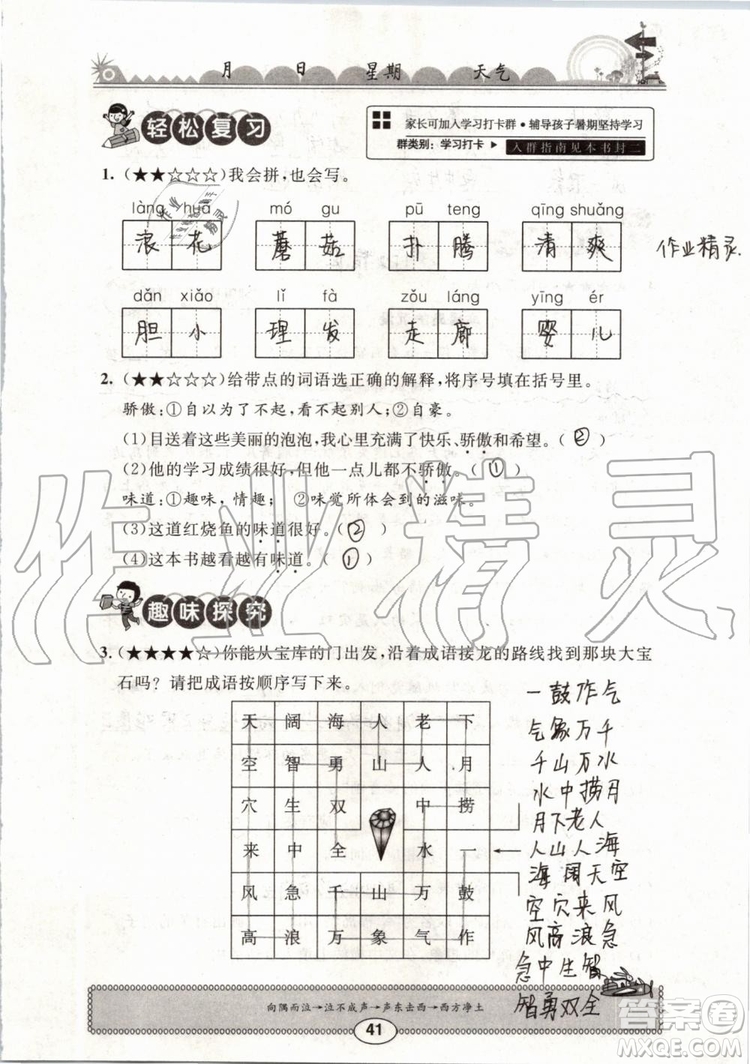 月 日 星期 天气
轻松复习
家长可加入学习打卡群·辅导孩子暑期坚持学习
群类别：学习打卡 入群指南见本书封二
1. (★★☆☆☆)我会拼，也会写。
làng huā mó gu pū teng qīng shuǎng
浪花 蘑菇 扑腾 清爽 作业精灵
dǎn xiǎo lǐ fà zǒu láng yīng ér
胆小 理发 走廊 婴儿
2. (★★☆☆☆)给带点的词语选正确的解释，将序号填在括号里。
骄傲：①自以为了不起，看不起别人；②自豪。
(1)目送着这些美丽的泡泡，我心里充满了快乐、骄傲和希望。(②)
(2)他的学习成绩很好，但他一点儿都不骄傲。(①)
味道：①趣味，情趣； ②味觉所体会到的滋味。
(3)这道红烧鱼的味道很好。(②)
(4)这本书越看越有味道。(①)
趣味探究
3. (★★★★☆)你能从宝库的门出发，沿着成语接龙的路线找到那块大宝
石吗？请把成语按顺序写下来。
天 阔 海 人 老 下
空 智 勇 山 人 月
穴 生 双 中 捞
来 中 全 水 一
风 急 千 山 万 鼓
高 浪 万 象 气 作
一鼓作气
气象万千
千山万水
水中捞月
月下老人
人山人海
海阔天空
空穴来风
风高浪急
急中生智
智勇双全
向隅而泣→泣不成声→声东击西→西方净土
41
作业精灵
答案圈
MXQE.COM